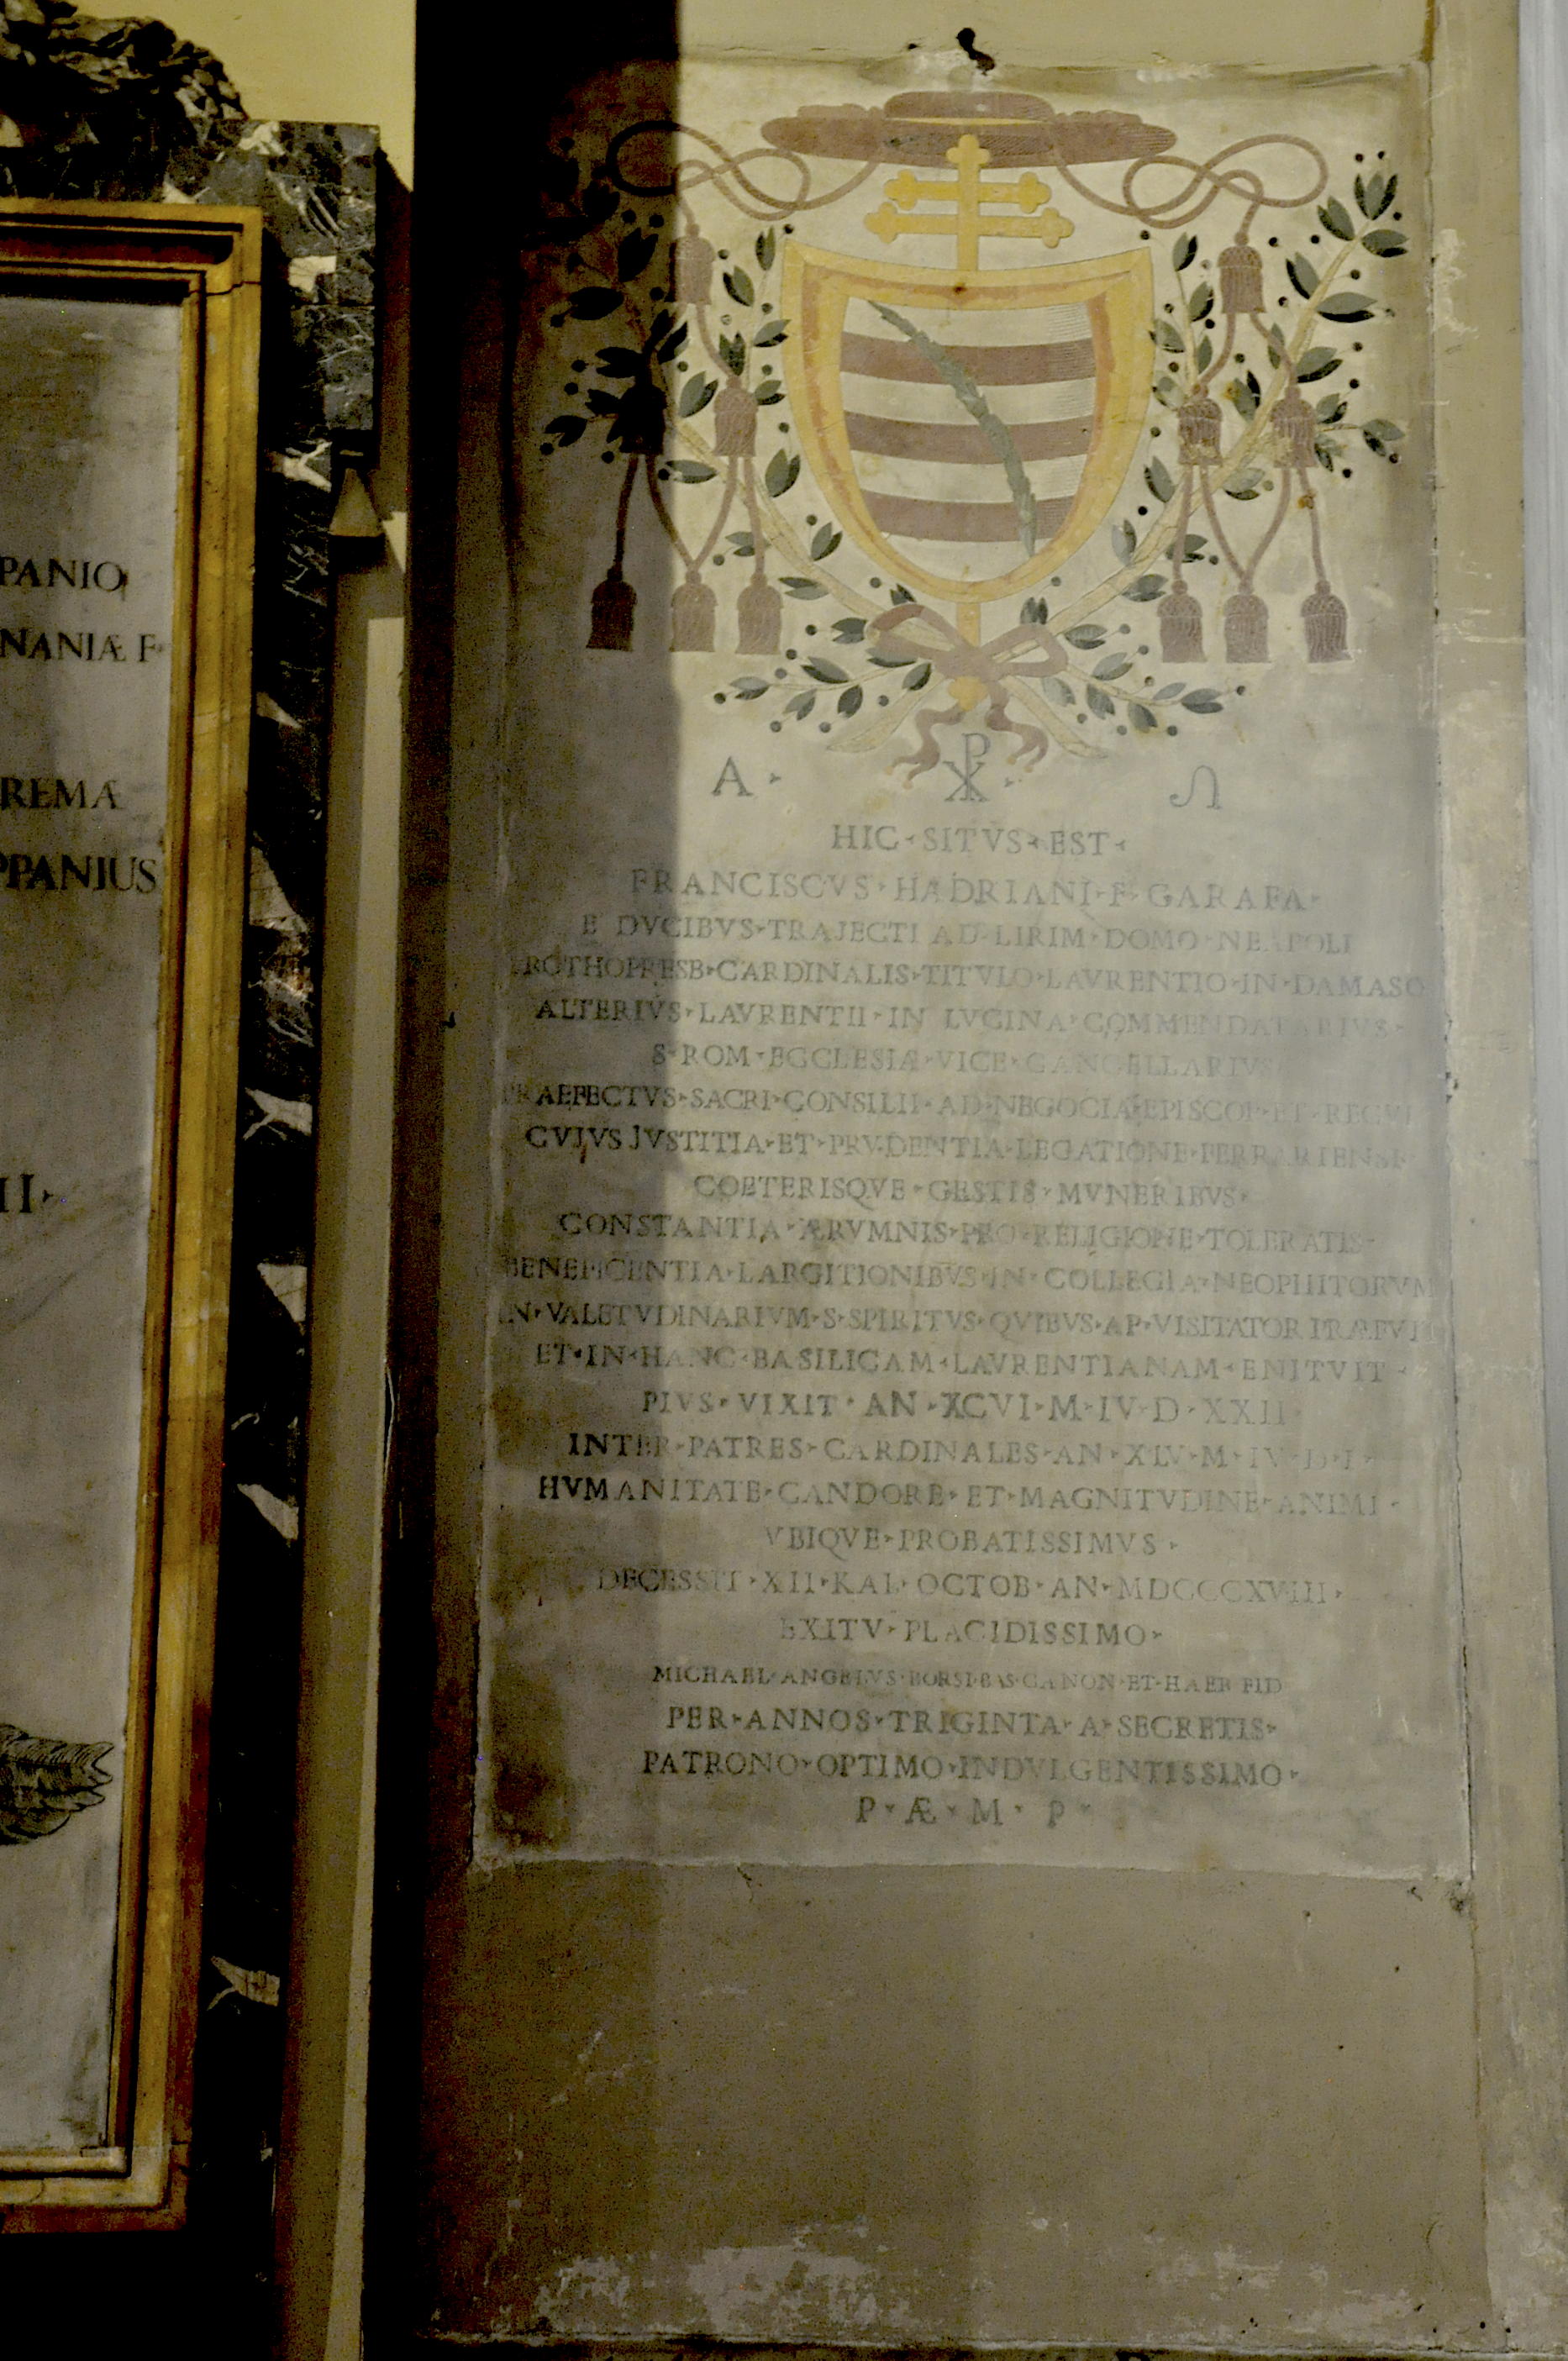 PANIO
NANIÆ F·
REMÆ
PPANJUS
II·
A · ☧ · Ω
HIC · SITVS · EST ·
FRANCISCVS · HADRIANI · F · CARAFA ·
E DVCIBVS · TRAJECTI AD · LIRIM · DOMO · NEAPOLI
PROTHOPRESB · CARDINALIS · TITVLO · LAVRENTIO · IN · DAMASO
ALTERIVS · LAVRENTII · IN LVCINA · COMMENDATARIVS ·
S · ROM · ECCLESIÆ · VICE · CANCELLARIVS
PRAEFECTVS · SACRI · CONSILII · AD · NEGOCIA · EPISCOP · ET · REGVL
CVJVS JVSTITIA · ET · PRVDENTIA · LEGATIONE · FERRARIENSI
COETERISQVE · GESTIS · MVNERIBVS ·
CONSTANTIA · ÆRVMNIS · PRO · RELIGIONE · TOLERATIS ·
BENEFICENTIA · LARGITIONIBVS · IN · COLLEGIA · NEOPHITORVM
IN · VALETVDINARIVM · S · SPIRITVS · QVIBVS · AP · VISITATOR PRÆFVIT
ET · IN · HANC · BASILICAM · LAVRENTIANAM · ENITVIT ·
PIVS · VIXIT · AN · XCVI · M · IV · D · XXII
INTER · PATRES · CARDINALES · AN · XLV · M · IV · D · I ·
HVMANITATE · CANDORE · ET · MAGNITVDINE · ANIMI ·
VBIQVE · PROBATISSIMVS ·
DECESSIT · XII · KAL · OCTOB · AN · MDCCCXVIII ·
EXITV · PLACIDISSIMO ·
MICHAEL · ANGELVS · BORSI · BAS · CANON · ET · HAER FID
PER · ANNOS · TRIGINTA · A · SECRETIS ·
PATRONO · OPTIMO · INDVLGENTISSIMO ·
P · Æ · M · P ·